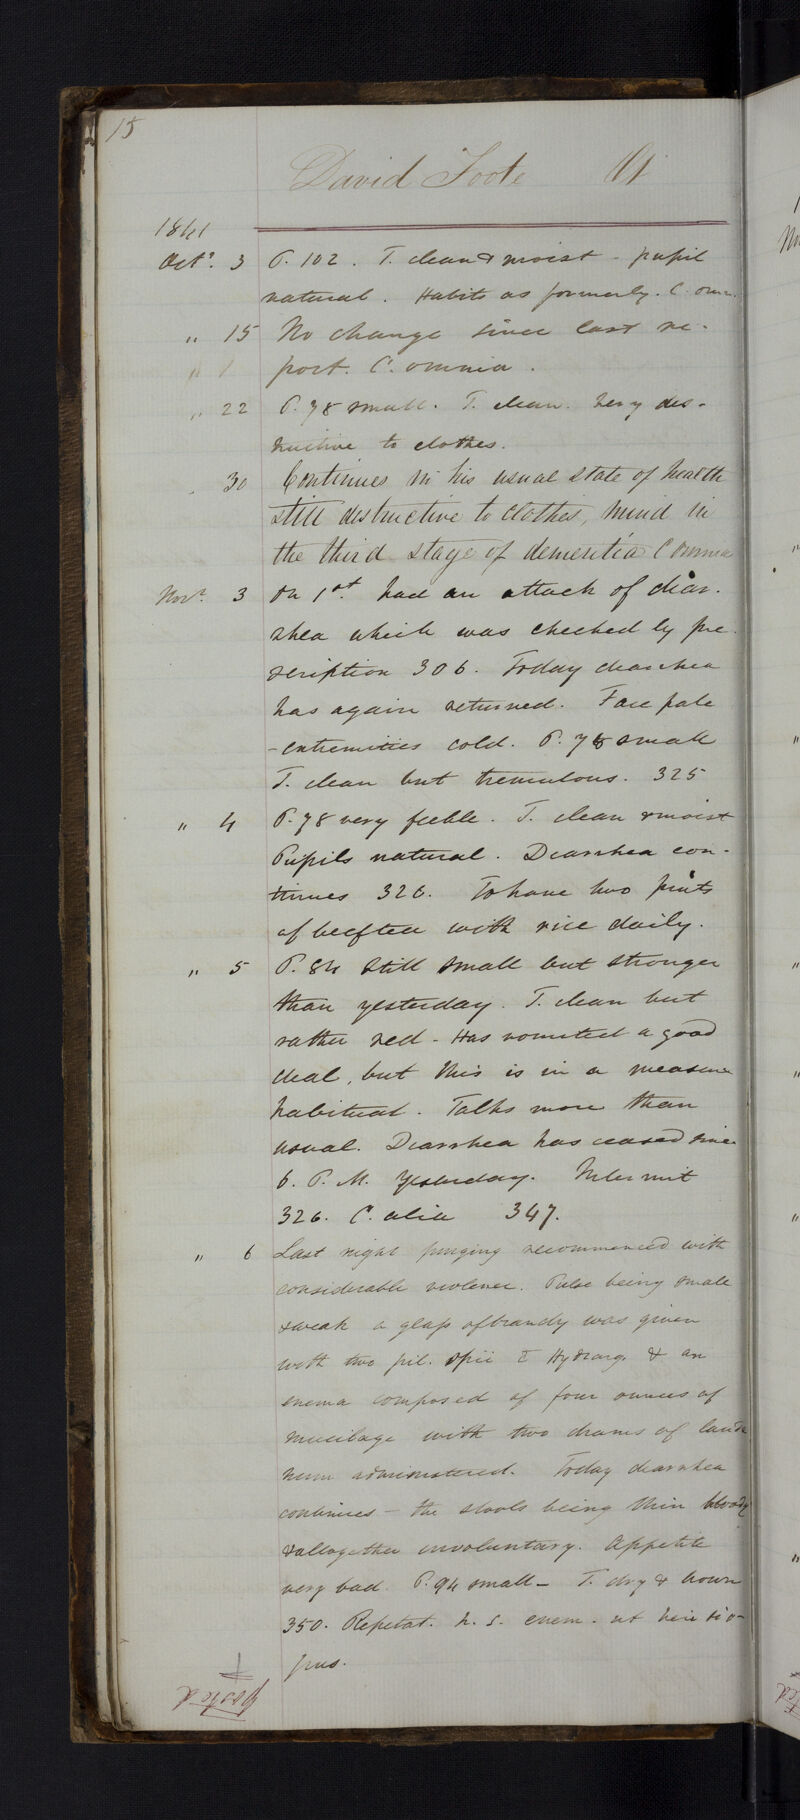 15
David Foote
1841
Octr. 3 P. 102. T. clean & moist - pupil
natural. Habits as formerly. C. omn.
" 15 No change since last re-
port. C. omnia.
" 22 P. 78 small. T. clean. Very des-
tructive to clothes.
30 Continues in his usual state of health
still destructive to clothes, mind in
the third stage of dementia C omnia
Novr. 3 On 1st. had an attack of diar-
rhea which was checked by pre-
scription 306. Today diarrhea
has again returned. Face pale
- extremities cold. P. 78 small
T. clean but tremulous. 325
" 4 P. 78 very feeble. T. clean & moist
Pupils natural. Diarrhea con-
tinues 326. To have two pints
of beeftea with rice daily.
" 5 P. 84 still small but stronger
than yesterday. T. clean but
rather red - Has vomited a good
deal, but this is in a measure
habitual. Talks more than
usual. Diarrhea has ceased since
6. P. M. Yesterday. Intermit
326. C. alia 347.
" 6 Last night purging recommenced with
considerable violence. Pulse being small
& weak a glass of brandy was given
with two pil. opii c Hydrarg. & an
enema composed of four ounces of
mucilage with two drams of lauda
num administered. Today diarrhea
continues - the stools being thin bloody
& altogether involuntary. Appetite
very bad. P. 94 small - T. dry & brown
350. Repetat. h. s. enem. ut heri
posted